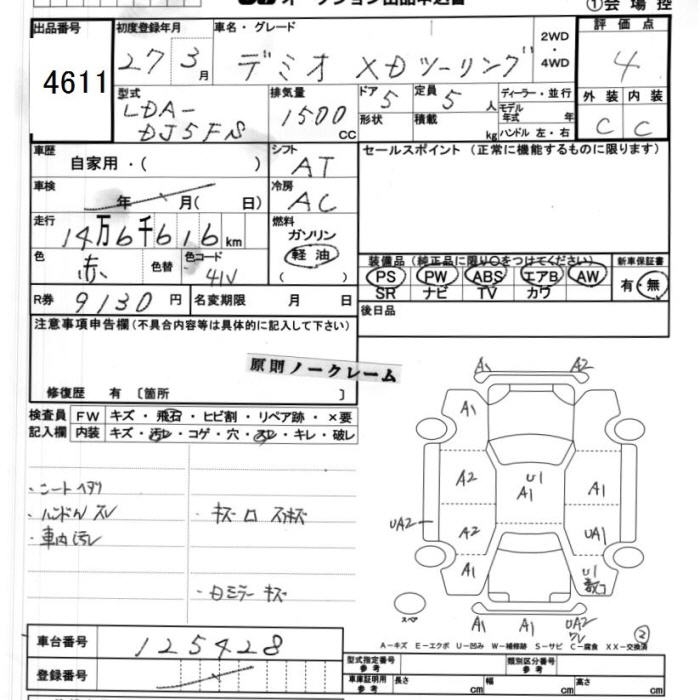 オークション出品申込書
①会場控
出品番号 初度登録年月 車名・グレード 2WD・4WD 評価点
4611 27 3月 デミオ XDツーリング 4
型式 LDA-DJ5FS 排気量 1500cc ドア 5 定員 5人 ディーラー・並行
形状 積載 kg モデル年式 年 ハンドル 左・右
外装 内装
C C
車歴 自家用・( ) シフト AT
セールスポイント (正常に機能するものに限ります)
車検 年 月( 日) 冷房 AC
走行 14万6千616km 燃料 ガソリン 軽油 ( )
色 赤 色替 色コード 41V
装備品(純正品に限り○をつけてください) 新車保証書
PS PW ABS エアB AW 有・無
SR ナビ TV カワ
R券 9130円 名変期限 月 日
後日品
注意事項申告欄(不具合内容等は具体的に記入して下さい)
原則ノークレーム
修復歴 有 〔箇所 〕
検査員記入欄 FW キズ・飛石・ヒビ割・リペア跡・×要
内装 キズ・汚レ・コゲ・穴・スレ・キレ・破レ
・ハンドルスレ
・車内汚レ
・ドミラー キズ
A1 A2
A1
A2 U1 A1 A1
UA2 A2 UA1
A1 U1
スペア A1 A1 UA2
②
A-キズ E-エクボ U-凹み W-補修跡 S-サビ C-腐食 XX-交換済
車台番号 125428
登録番号
型式指定番号 参考 類別区分番号 参考
車庫証明用 参考 長さ cm 幅 cm 高さ cm